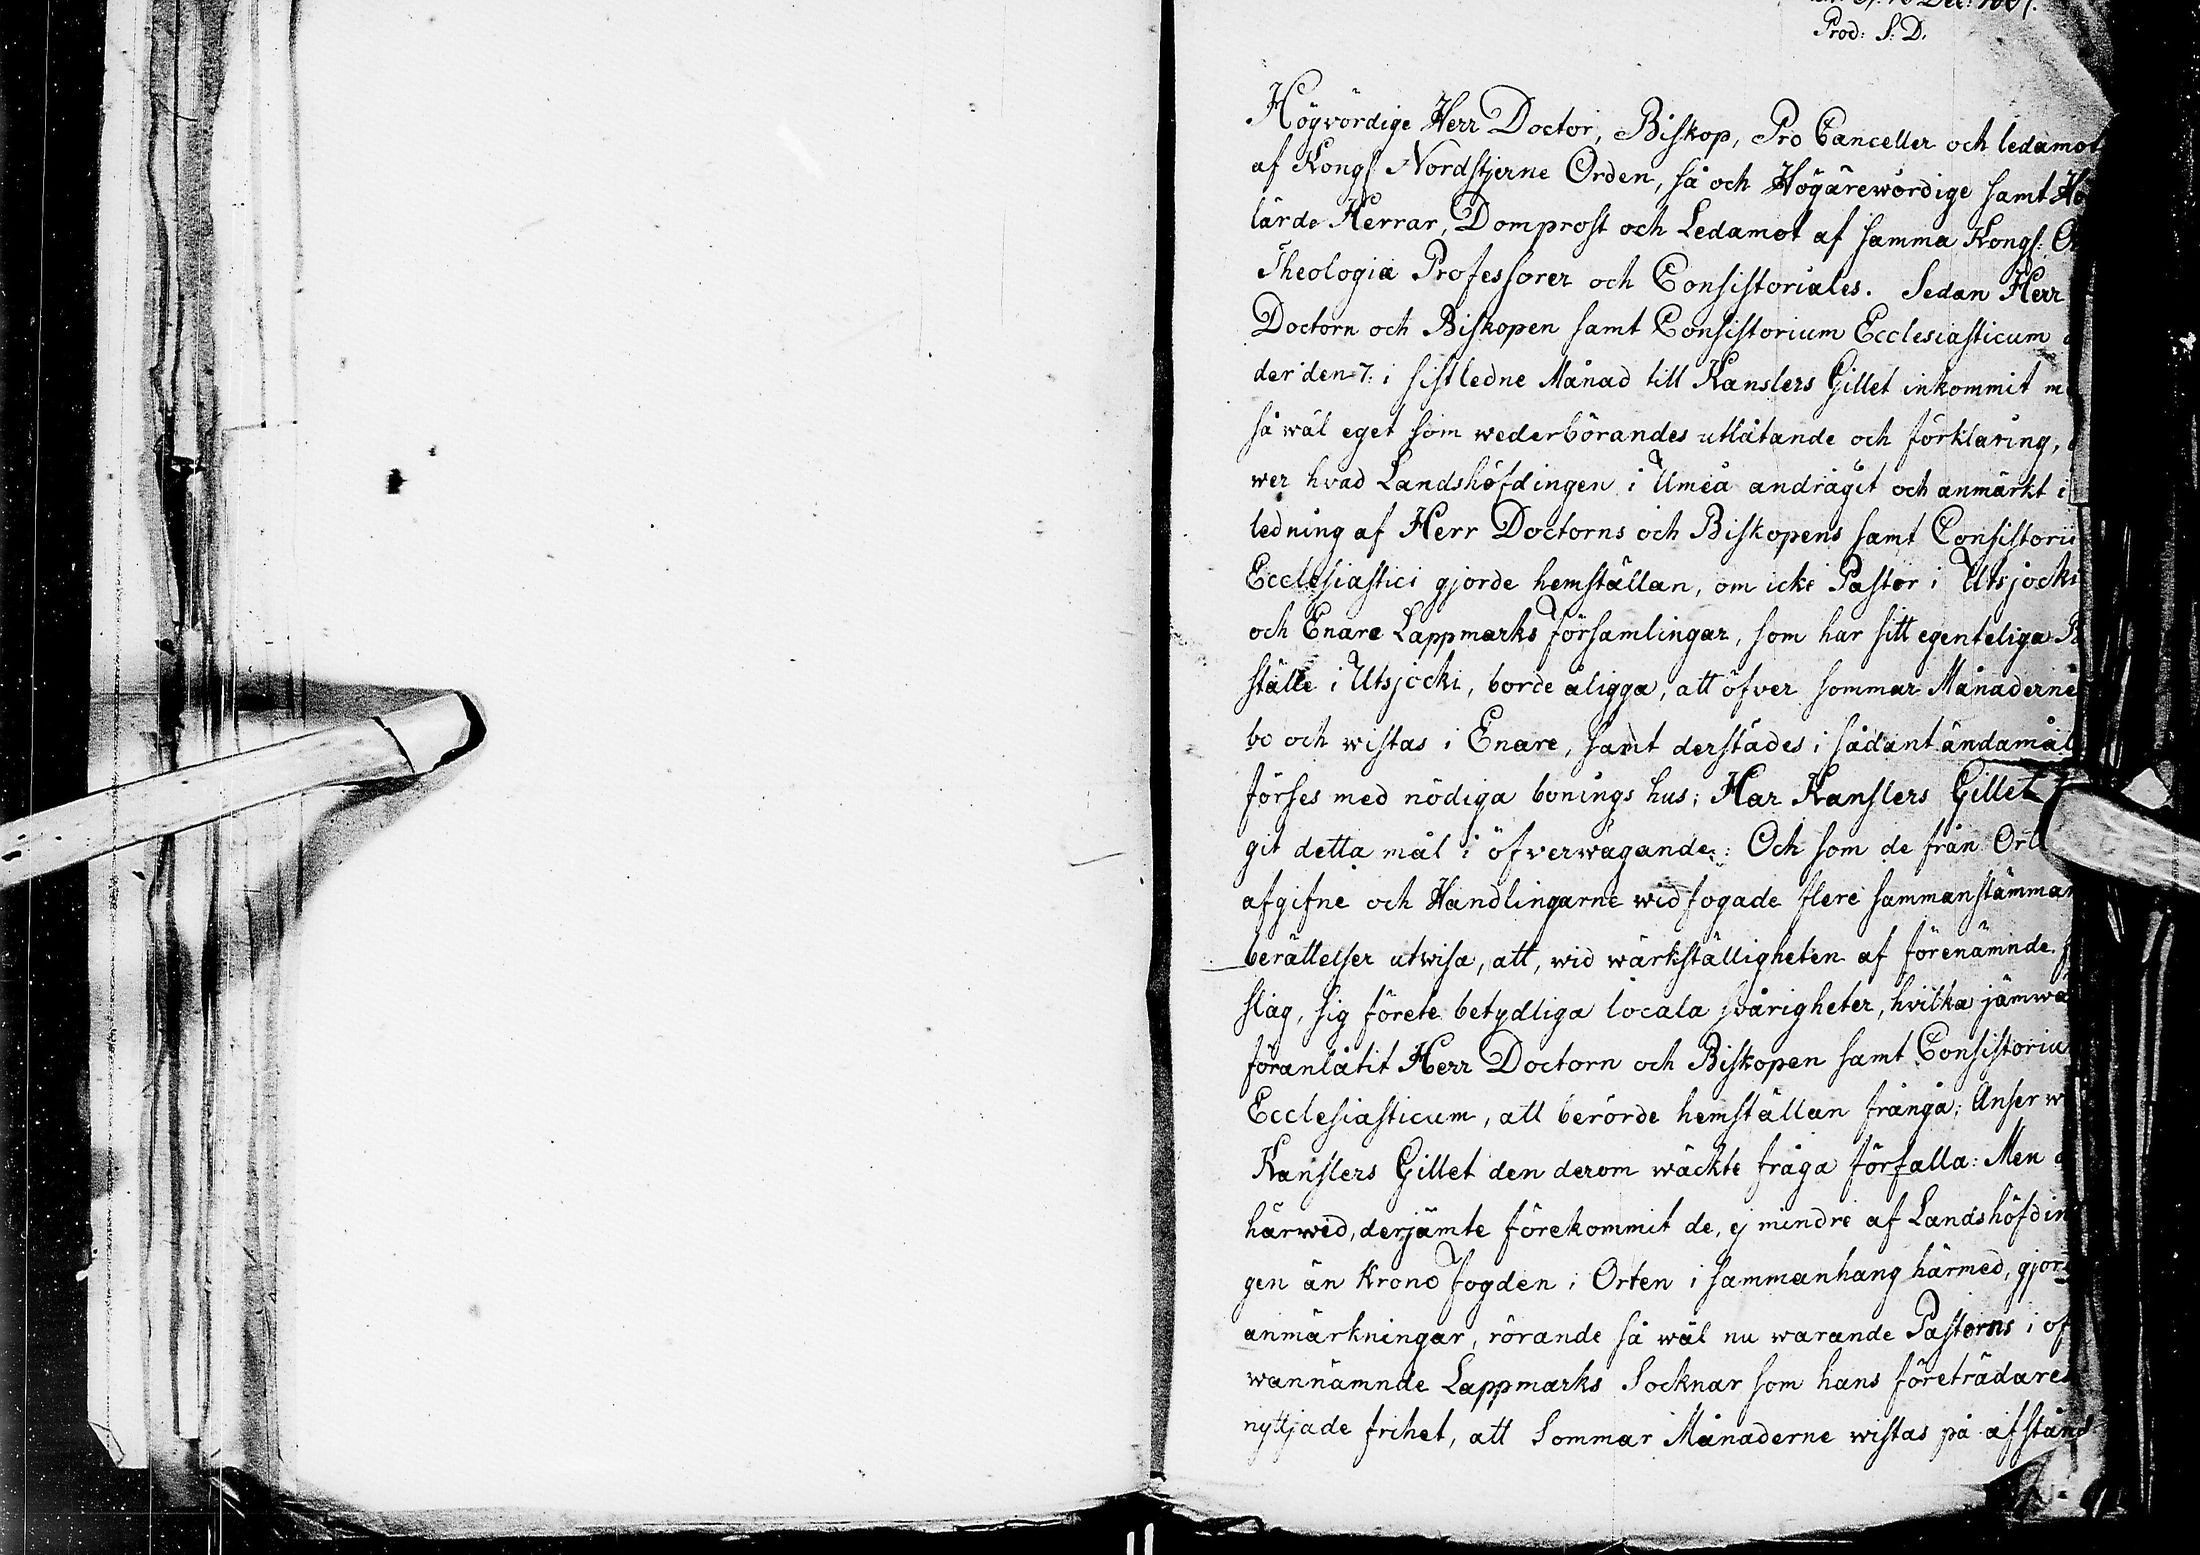 Dec: 180
Prod: S. D.
Högvördige Herr Doctor, Biskop, Pro Canceller och ledamot
af Kongl Nordstjerne Orden, så och Högärewördige samt Hö
lärde Herrar, Domprost och Ledamot af samma Kongl: O
Theologiæ Professorer och Consistoriales. Sedan Herr
Doctorn och Biskopen samt Consistorium Ecclesiasticum
der den 7: i sistledne Månad till Kanslers Gillet inkommit m
så wäl eget som wederbörandes utlåtande och förklaring,
wer hvad Landshöfdingen i Umeå andragit och anmärkt i
ledning af Herr Doctorns och Biskopens samt Consistorii
Ecclesiastici gjorde hemställan, om icke Pastor i Utsjocki
och Enare Lappmarks Församlingar, som har sitt egenteliga
ställe i Utsjocki, borde åligga, att öfver sommar Månaderne
bo och wistas i Enare, samt derstädes i sådant ändamål
förses med nödiga bonings hus; Har Kanslers Gillet
git detta mål i öfverwägande: Och som de från Ort
afgifne och Handlingarne widfogade flere sammanstämman
berättelser utwisa, att, wid wärkställigheten af förenämnde
slag, sig förete betydliga locala svårigheter, hvilka jämwä
föranlåtit Herr Doctorn och Biskopen samt Consistoriu
Ecclesiasticum, att berörde hemställan frångå; Anser w
Kanslers Gillet den derom wäckte fråga förfalla: Men
härwid, derjämte förekommit de, ej mindre af Landshöfdin
gen än Krono Fogden i Orten i sammanhang härmed, gjord
anmärkningar, rörande så wäl nu warande Pastorns i of
wannämnde Lappmarks Socknar som hans företrädares
nyttjade frihet, att Sommar Månaderne wistas på afstånd